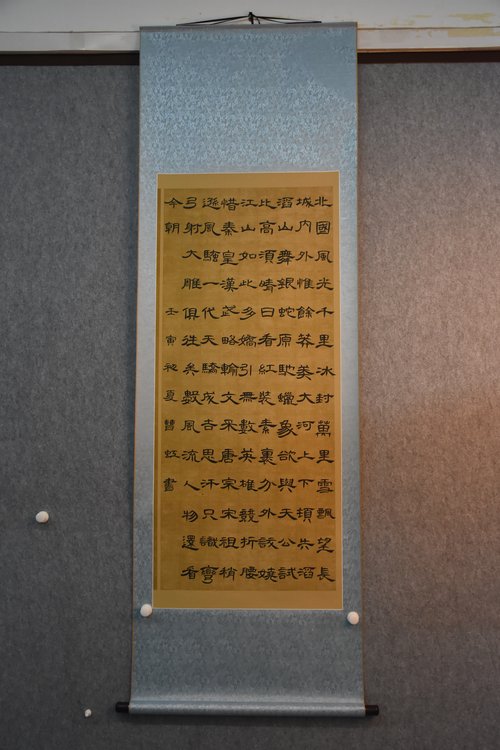 北國風光千里冰封萬里雪飄望長
城内外惟餘莽莽大河上下頓失滔
滔山舞銀蛇原馳蠟象欲與天公試
比高須晴日看紅裝素裹分外妖嬈
江山如此多嬌引無數英雄競折腰
惜秦皇漢武略輸文采唐宗宋祖稍
遜風騷一代天驕成吉思汗只識彎
弓射大雕俱往矣數風流人物還看
今朝 壬寅初夏曹虹書